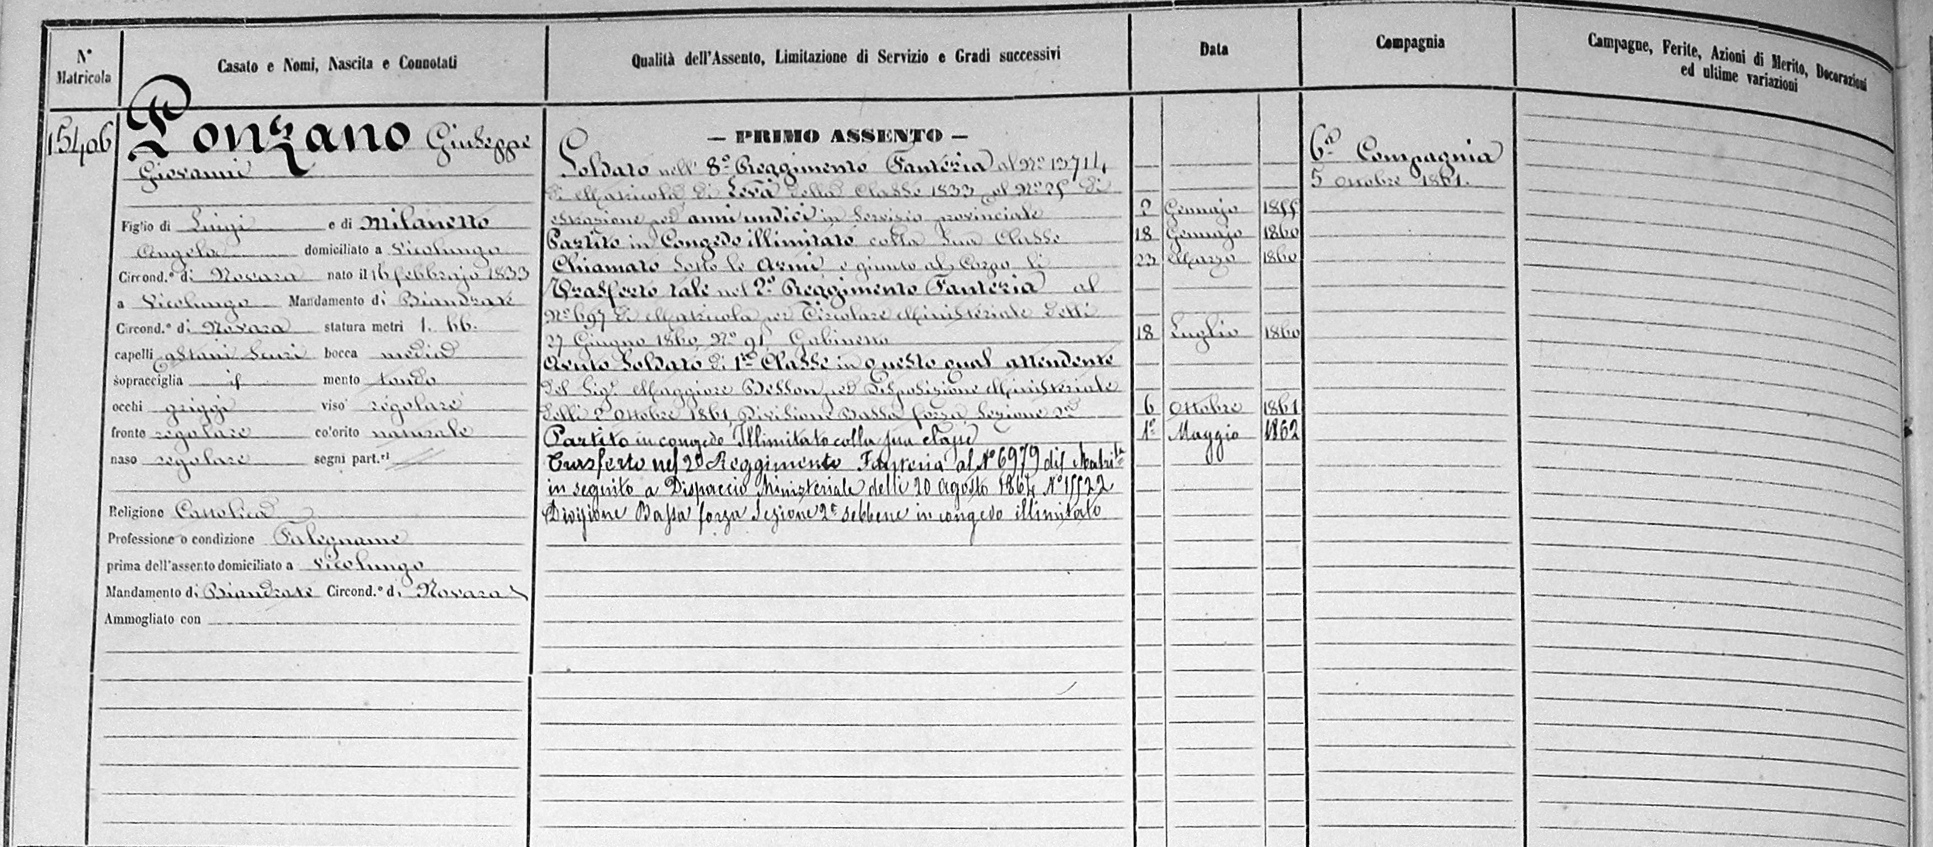 N° Matricola
Casato e Nomi, Nascita e Connotati
Qualità dell'Assento, Limitazione di Servizio e Gradi successivi
Data
Compagnia
Campagne, Ferite, Azioni di Merito, Decorazioni
ed ultime variazioni
15406
Ponzano Giuseppe
Giovanni
Figlio di Luigi e di Milanetto
Angela domiciliato a Vicolungo
Circond.° di Novara nato il 16 febbrajo 1833
a Vicolungo Mandamento di Biandrate
Circond.° di Novara statura metri 1. 66.
capelli castani scuri bocca media
sopracciglia if mento tondo
occhi griggi viso regolare
fronte regolare colorito naturale
naso regolare segni part.ri
Religione Cattolica
Professione o condizione Falegname
prima dell'assento domiciliato a Vicolungo
Mandamento di Biandrate Circond.° di Novara
Ammogliato con
— PRIMO ASSENTO —
Soldato nell' 8° Reggimento Fanteria al N° 13714
di Matricola di Leva della Classe 1833 al N° 25 di
estrazione per anni undici in servizio provinciale 2 Gennajo 1855
Partito in Congedo illimitato colla sua Classe 18 Gennajo 1860
Chiamato sotto le armi e giunto al Corpo li 23 Marzo 1860
Trasferto tale nel 2° Reggimento Fanteria al
N° 697 di Matricola per Circolare Ministeriale delli
27 Giugno 1860 N° 91 Gabinetto 18 Luglio 1860
Avuto Soldato di 1ª Classe in questo qual attendente
del Sig.r Maggiore Besson per disposizione Ministeriale
delli 2 Ottobre 1861 Divisione Bassa forza Sezione 2ª 6 Ottobre 1861
Partito in congedo Illimitato colla sua classe 1° Maggio 1862
Trasferto nel 2° Reggimento Fanteria al N° 6979 di Matrila
in seguito a Dispaccio Ministeriale delli 20 Agosto 1864 N° 15522
Divisione Bassa forza Sezione 2ª sebbene in congedo illimitato
6ª Compagnia
5 Ottobre 1861.